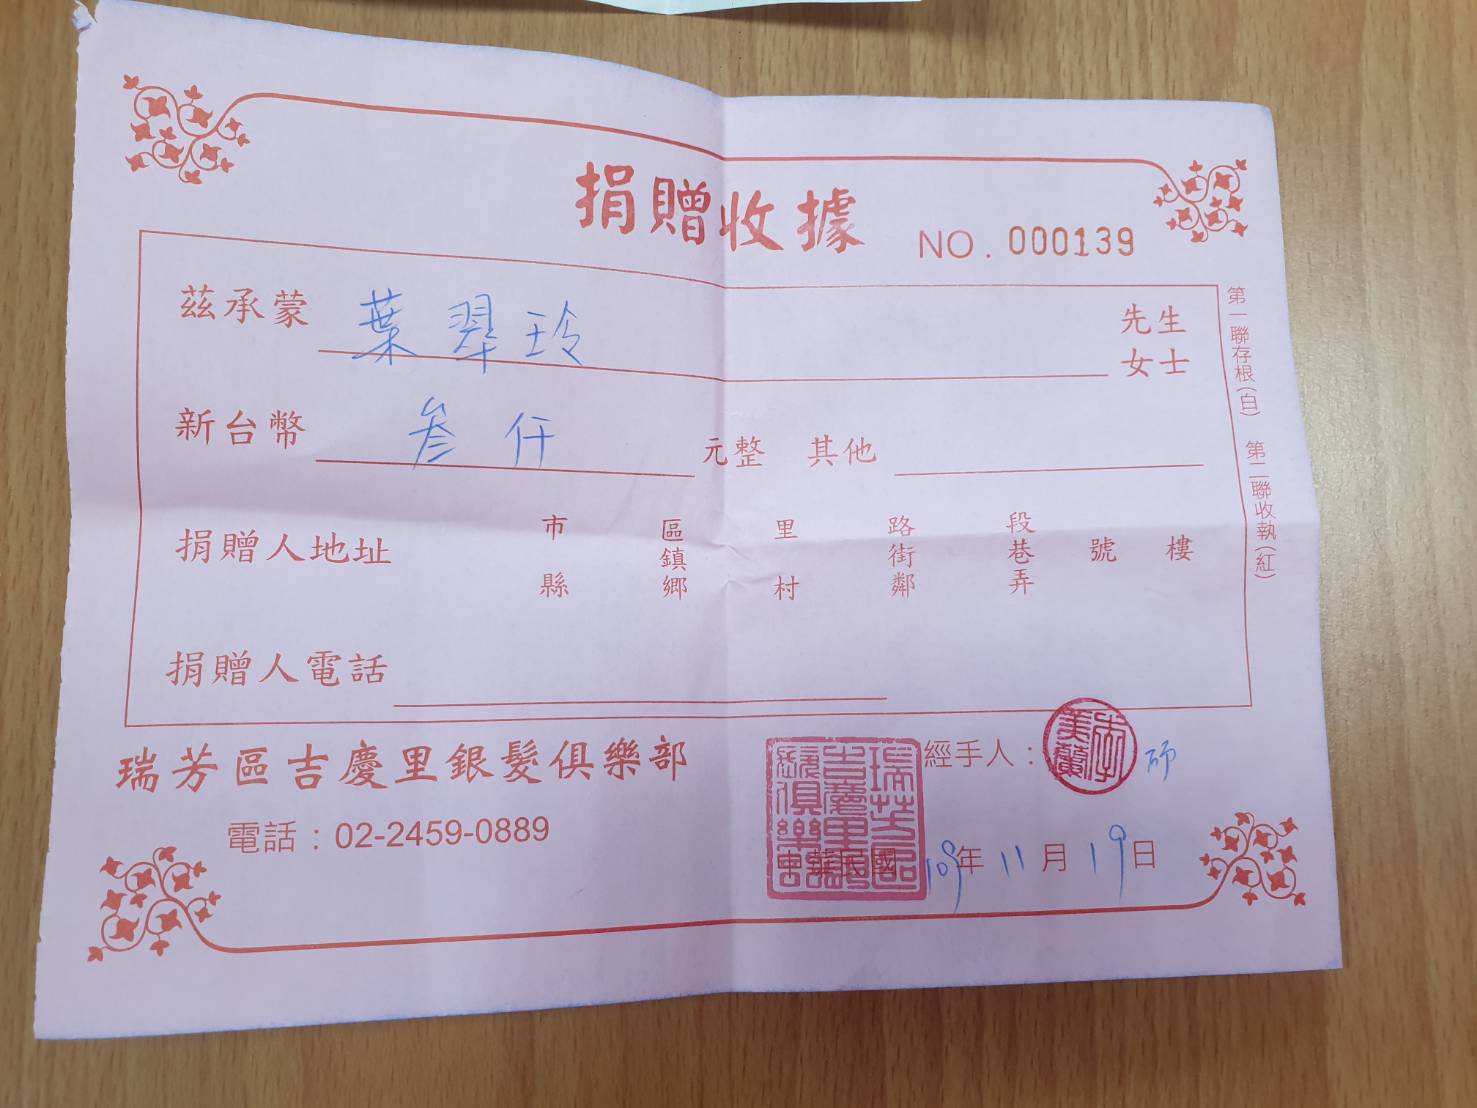 捐贈收據
NO. 000139
茲承蒙 葉翠玲 先生 女士
新台幣 叁仟 元整 其他
捐贈人地址 市縣 區鎮鄉 里村 路街鄰 段巷弄 號 樓
捐贈人電話
第一聯存根(白) 第二聯收執(紅)
瑞芳區吉慶里銀髮俱樂部
電話:02-2459-0889
經手人:
瑞芳區吉慶里銀髮俱樂部
中華民國 109年 11月 19日